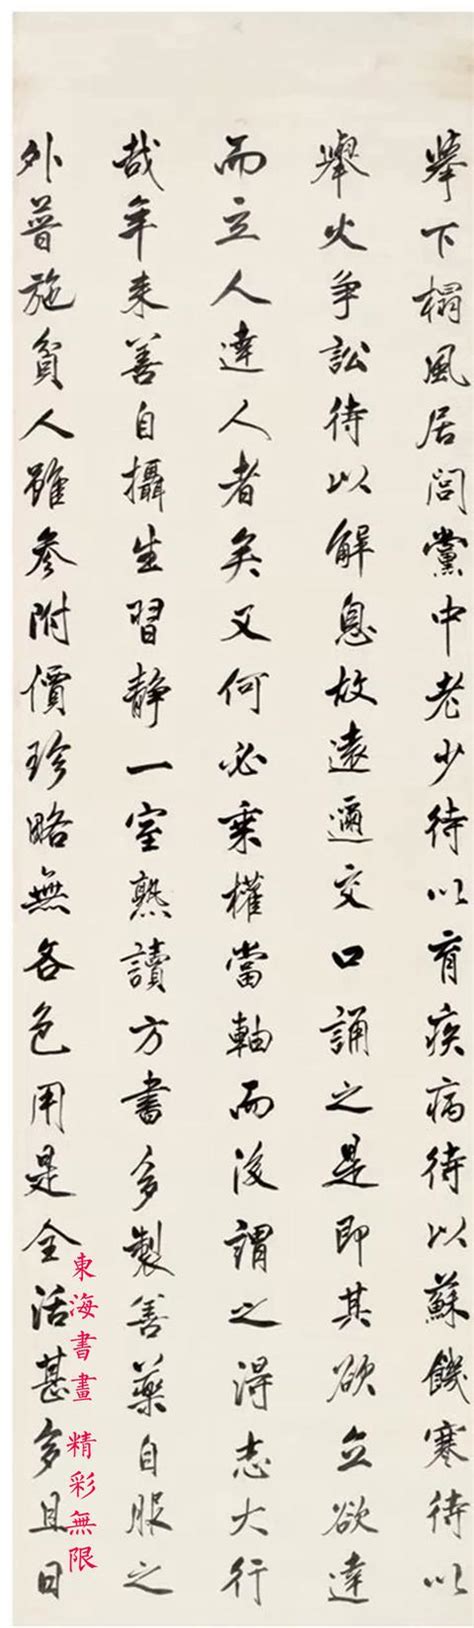 擧下榻風居閭黨中老少待以育疾病待以蘇饑寒待以
舉火爭訟待以解息故遠邇交口誦之是即其欲立欲達
而立人達人者矣又何必乘權當軸而後謂之得志大行
哉年來善自攝生習静一室熟讀方書多製善藥自服之
外普施貧人雖參附價珍略無各色用是全活甚多且日
東海書畫 精彩無限